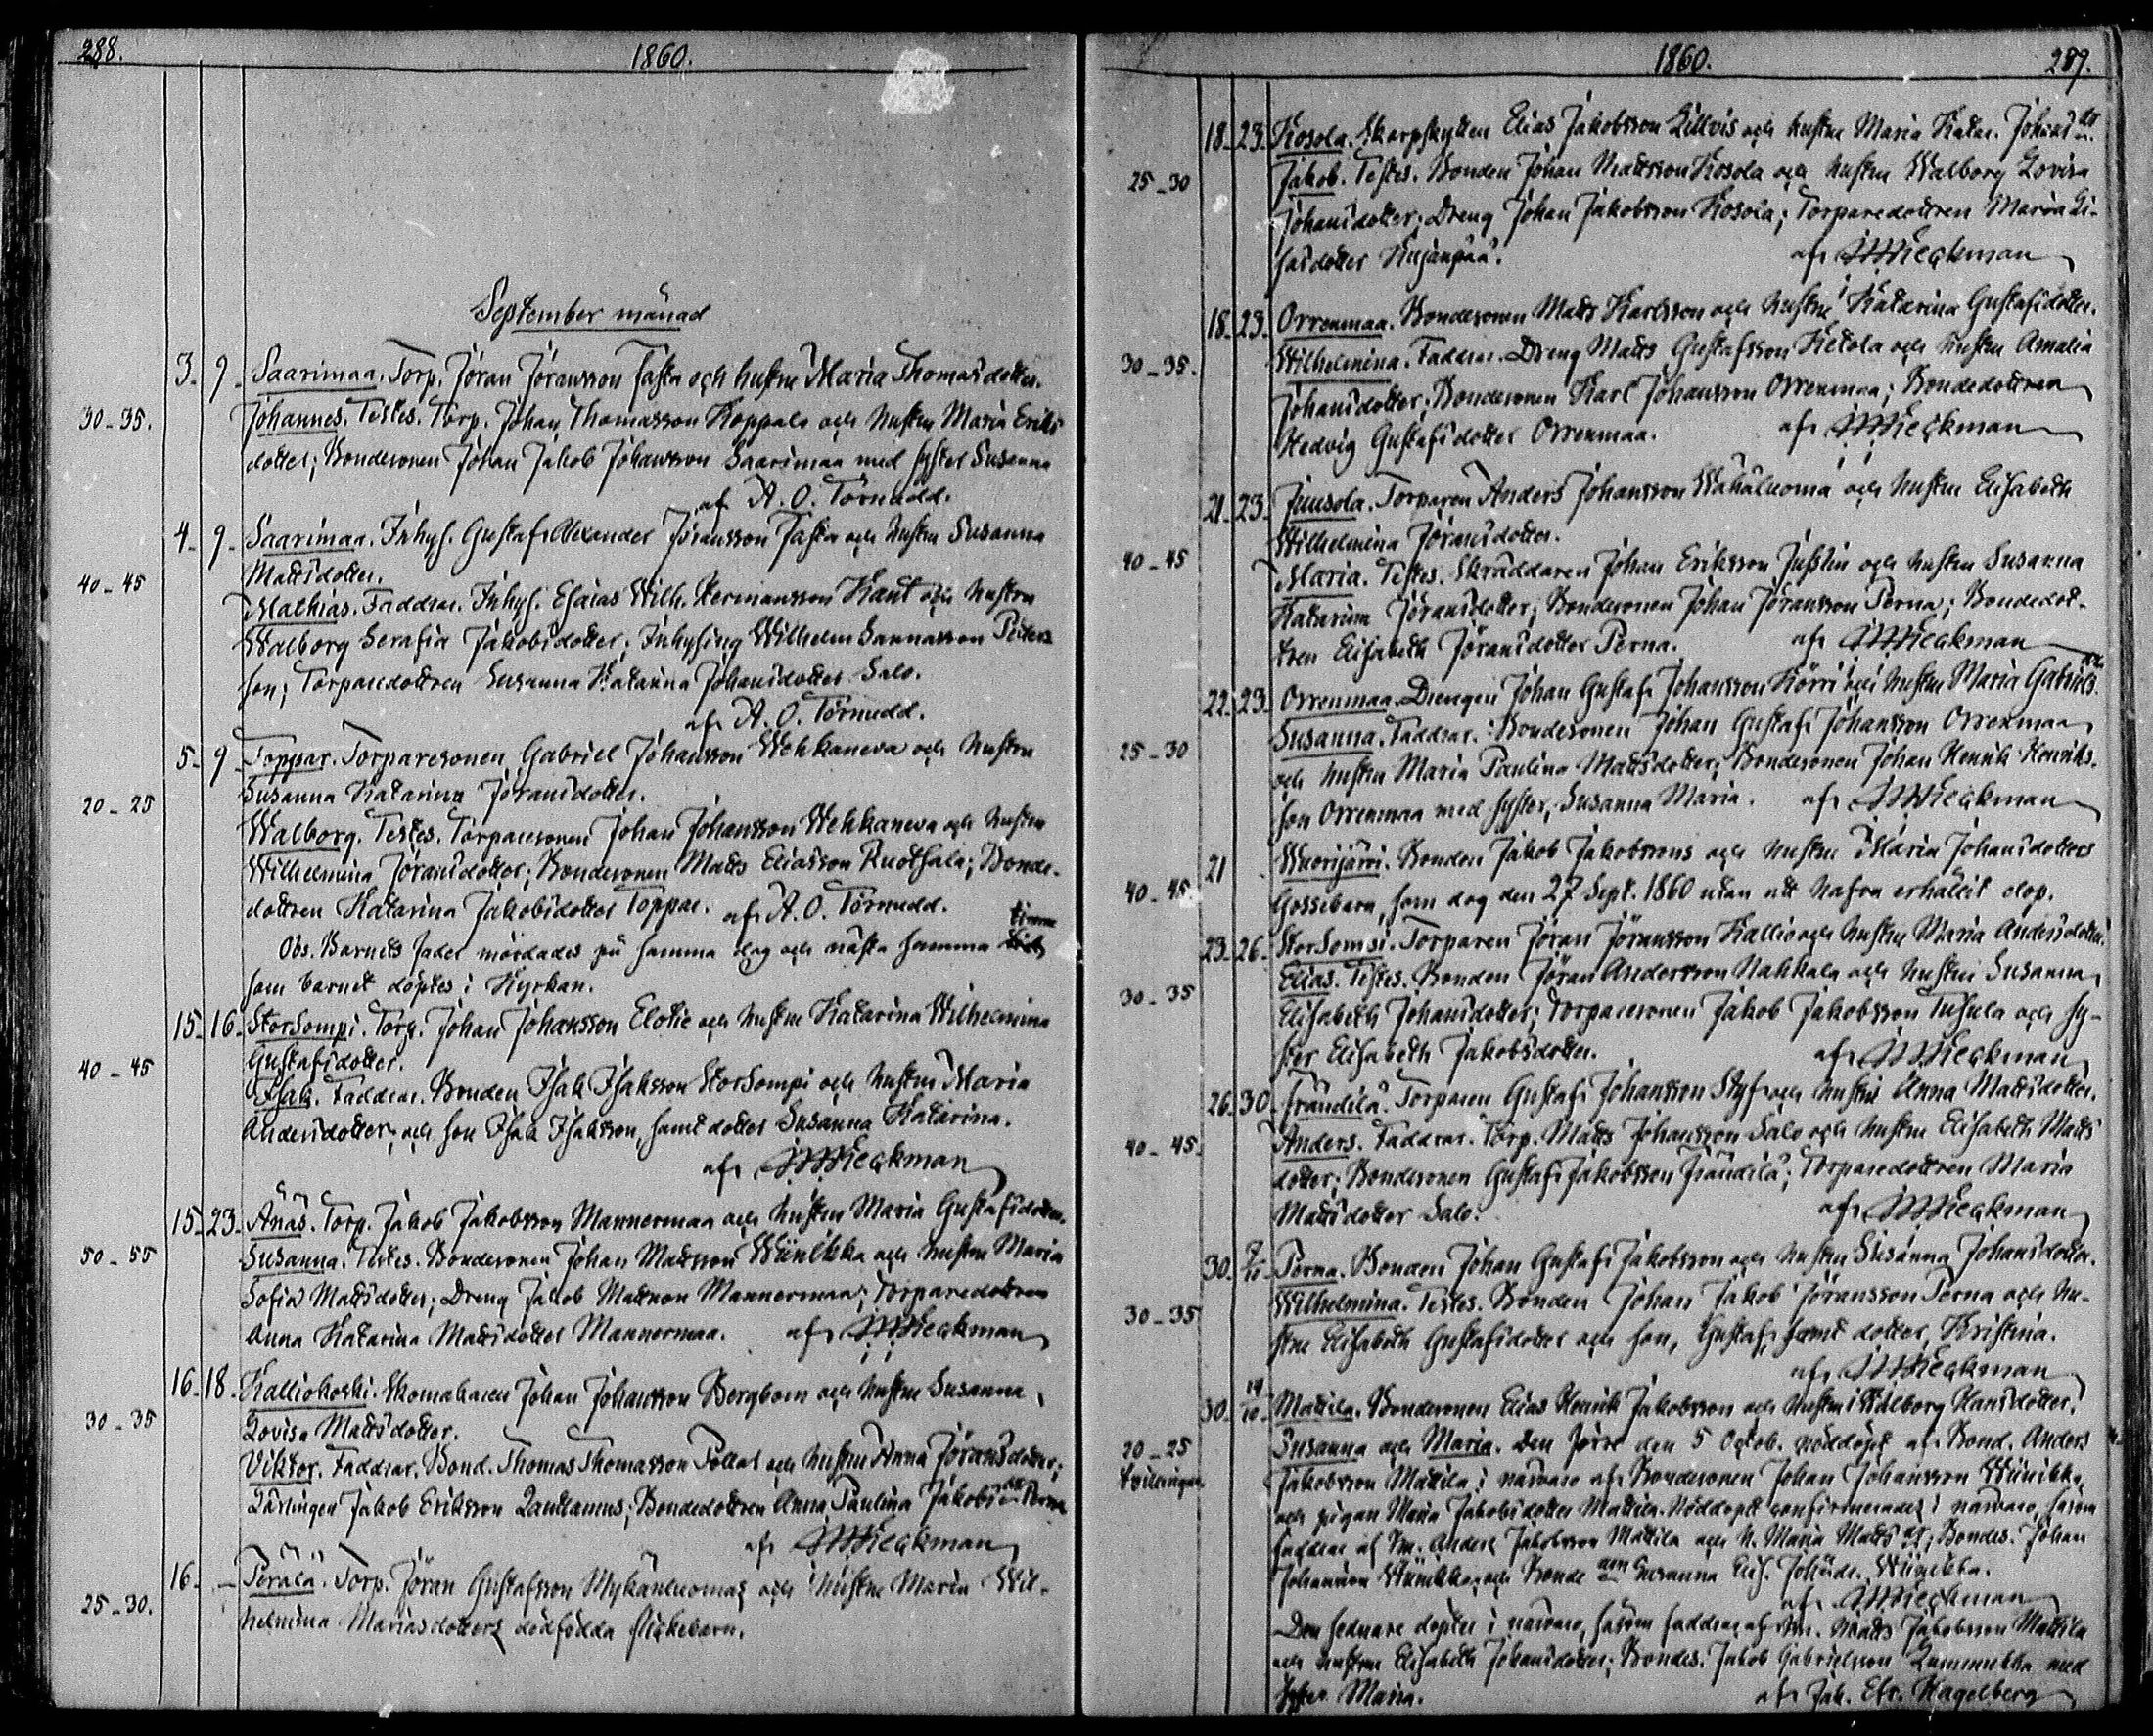 288.
1860.
September månad
3. 9. Saarimaa. Torp. Jöran Jöransson Taska och hustru Maria Thomasdotter.
30-35. Johannes. Testes. Torp. Johan Thomasson Koppala och hustru Maria Eriks
dotter; Bondesonen Johan Jakob Johansson Saarimaa med syster Susanna
af A. O. Törnudd.
4. 9. Saarimaa. Inhys. Gustaf Alexander Jöransson Taska och hustru Susanna
Mattsdotter.
40-45 Mathias. Faddrar. Inhys. Esaias Wilh. Hermansson Kant och hustru
Walborg Serafia Jakobsdotter; Inhysing Wilhelm Sannasson Peters
son; Torparedottren Susanna Katarina Johansdotter Salo.
af A. O. Törnudd.
5. 9. Toppar. Torparesonen Gabriel Johansson Wehkaneva och hustru
Susanna Katarina Jöransdotter.
20-25
Walborg. Testes. Torparesonen Johan Johansson Wehkaneva och hustru
Wilhelmina Jöransdotter; Bondesonen Matts Eliasson Ruotsala; Bonde-
dottren Katarina Jakobsdotter Toppar. af A. O. Törnudd.
Obs. Barnets fader mördades på samma dag och nästa samma timme
som barnet döptes i Kyrkan.
15. 16. Storsompi. Torp. Johan Johansson Elotie och hustru Katarina Wilhelmina
Gustafsdotter.
40-45
Isak. Faddrar. Bonden Isak Isaksson Storsompi och hustru Maria
Andersdotter, och son Isak Isaksson, samt dotter Susanna Katarina.
af Wieckman
15. 23. Anäs. Torp. Jakob Jakobsson Mannermaa och hustru Maria Gustafsdotter.
50-55 Susanna. Testes. Bondesonen Johan Mattsson Wiinikka och hustru Maria
Sofia Mattsdotter; Dreng Jakob Mattsson Mannermaa; Torparedottren
Anna Katarina Mattsdotter Mannermaa. af Wieckman
16. 18. Kalliokoski. Skomakaren Johan Johansson Bergbom och hustru Susanna
30-35 Lovisa Mattsdotter.
Viktor. Faddrar. Bond. Thomas Thomasson Pollat och hustru Anna Jöransdotter;
Lärlingen Jakob Eriksson Lanttamus; Bondedottren Anna Paulina Jakobsdr Perna
af Wieckman
16. - Perälä. Torp. Jöran Gustafsson Mykänluomas och hustru Maria Wil-
25-30. helmina Mariasdotters dödfödda flickebarn.
1860. 289.
18. 23. Kosola. Skarpskytten Elias Jakobsson Lillvis och hustru Maria Katar. Johansdr.
25-30 Jakob. Testes. Bonden Johan Mattsson Kosola och hustru Walborg Lovisa
Johansdotter; Dreng Johan Jakobsson Kosola; Torparedottren Maria Li-
sasdotter Kujanpää. af Wieckman
18. 23. Orrenmaa. Bondesonen Matts Karlsson och hustru Katarina Gustafsdotter.
30-35. Wilhelmina. Faddrar. Dreng Matts Gustafsson Ketola och hustru Amalia
Johansdotter; Bondesonen Karl Johansson Orrenmaa; Bondedottren
Hedvig Gustafsdotter Orrenmaa. af Wieckman
21. 23. Juusola. Torparen Anders Johansson Wähäluoma och hustru Elisabeth
Wilhelmina Jöransdotter.
40-45
Maria. Testes. Skräddaren Johan Eriksson Jusslin och hustru Susanna
Katarina Jöransdotter; Bondesonen Johan Jöransson Perna; Bondedot-
tren Elisabeth Jöransdotter Perna. af Wieckman
22. 23. Orrenmaa. Drengen Johan Gustaf Johansson Körri och hustru Maria Gabriels dr.
25-30 Susanna. Faddrar. Bondesonen Johan Gustaf Johansson Orrenmaa
och hustru Maria Paulina Mattsdotter; Bondesonen Johan Henrik Henriks-
son Orrenmaa med syster, Susanna Maria. af Wieckman
21 Wuorijärvi. Bonden Jakob Jakobssons och hustru Maria Johansdotters
40-45 Gossebarn, som dog den 27 Sept. 1860 utan att hafva erhållit dop.
23. 26. Storsompi. Torparen Jöran Jöransson Kallio och hustru Maria Andersdotter.
30-35 Elias. Testes. Bonden Jöran Andersson Nahkala och hustru Susanna
Elisabeth Johansdotter; Torparesonen Jakob Jakobsson Tusula och sy-
ster Elisabeth Jakobsdotter. af Wieckman
26. 30. Frändilä. Torparen Gustaf Johansson Styf och hustru Anna Mattsdotter.
40-45. Anders. Faddrar. Torp. Matts Johansson Salo och hustru Elisabeth Matts
dotter; Bondesonen Gustaf Jakobsson Frändilä; Torparedottren Maria
Mattsdotter Salo. af Wieckman
30. 7/10. Perna. Bonden Johan Gustaf Jakobsson och hustru Susanna Johansdotter.
30-35 Wilhelmina. Testes. Bonden Johan Jakob Jöransson Perna och hu-
stru Elisabeth Gustafsdotter och son, Gustaf, samt dotter, Kristina.
af Wieckman
30. 14/10. Mattila. Bondesonen Elias Henrik Jakobsson och hustru Walborg Hansdotter.
20-25 Susanna och Maria. Den förre den 5 Octob. nöddöpt af Bond. Anders
Tvillingar. Jakobsson Mattila i närvaro af Bondesonen Johan Johansson Wiinikka
och pigan Maria Jakobsdotter Mattila. Nöddopet confirmerades i närvaro, såsom
faddrar af Anders Jakobsson Mattila och h. Maria Matts dr; Bondes. Johan
Johansson Wiinikka och Bonde Susanna Elis. Johsdr. Wiinikka.
af Wieckman
Den sednare döptes i närvaro, såsom faddrar af Matts Jakobsson Mattila
och hustru Elisabeth Johansdotter; Bondes. Jakob Gabrielsson Lummukka med
syster Maria. af Jak. Efr. Hagelberg